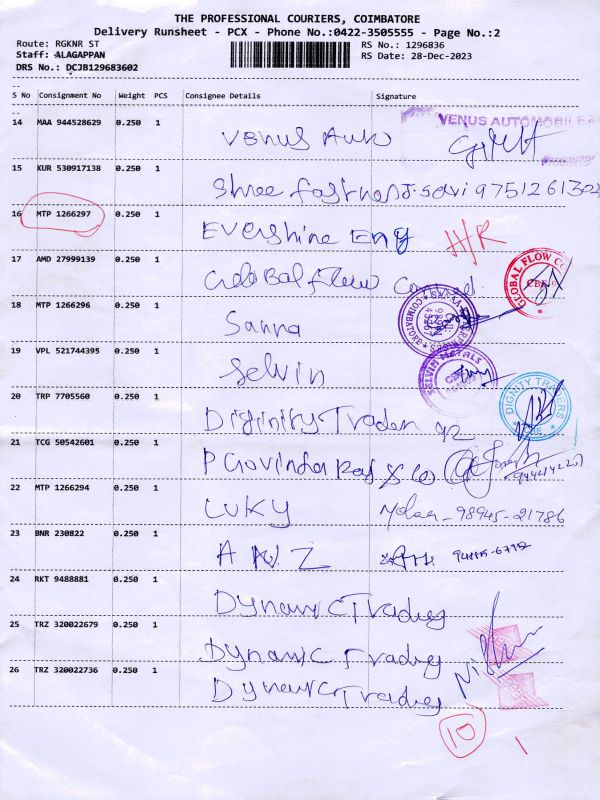 THE PROFESSIONAL COURIERS, COIMBATORE
Delivery Runsheet - PCX - Phone No.:0422-3505555 - Page No.:2
Route: RGKNR ST RS No.: 1296836
Staff: ALAGAPPAN RS Date: 28-Dec-2023
DRS No.: DCJB129683602
S No Consignment No Weight PCS Consignee Details Signature
14 MAA 944528629 0.250 1 Venus Auto VENUS AUTOMOBILES
Proprietor
15 KUR 530917138 0.250 1 Shree Fastners J. Selvi 9751261302
16 MTP 1266297 0.250 1 Evershine Eng H/R
17 AMD 27999139 0.250 1 Global flow Control GLOBAL FLOW CO CBE
18 MTP 1266296 0.250 1 Sanra COIMBATORE
19 VPL 521744395 0.250 1 Selvin SELVIN METALS
20 TRP 7705560 0.250 1 Diginity Trader DIGNITY TRADERS CBE
21 TCG 50542601 0.250 1 P Govinda Raj & Co
22 MTP 1266294 0.250 1 LUKY 98945-21786
23 BNR 230822 0.250 1 A N Z
24 RKT 9488881 0.250 1 Dynamic Trading
25 TRZ 320022679 0.250 1 Dynamic Trading
26 TRZ 320022736 0.250 1 Dynamic Trading
10 1